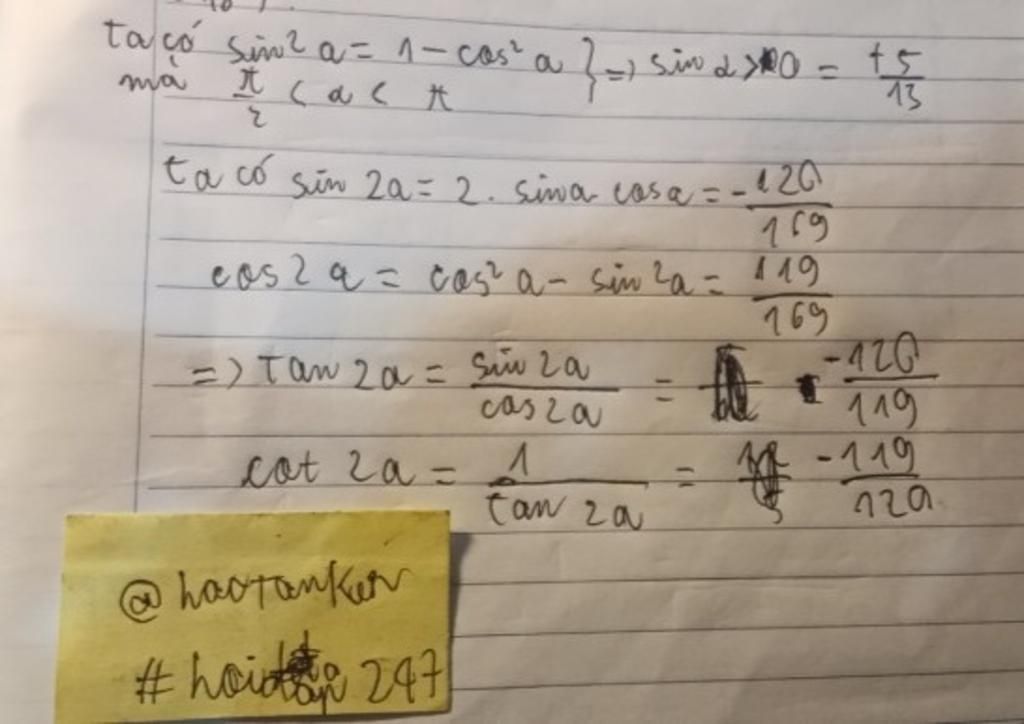 ta có sin² a = 1 - cos² a } => sin α > 0 = +5/13
mà π/2 < a < π
ta có sin 2a = 2. sina cosa = -120/169
cos2a = cos² a - sin²a = 119/169
=> tan 2a = sin 2a/cos2a = -120/119
cot 2a = 1/tan 2a = -119/120
@haotanker
# hoidap 247